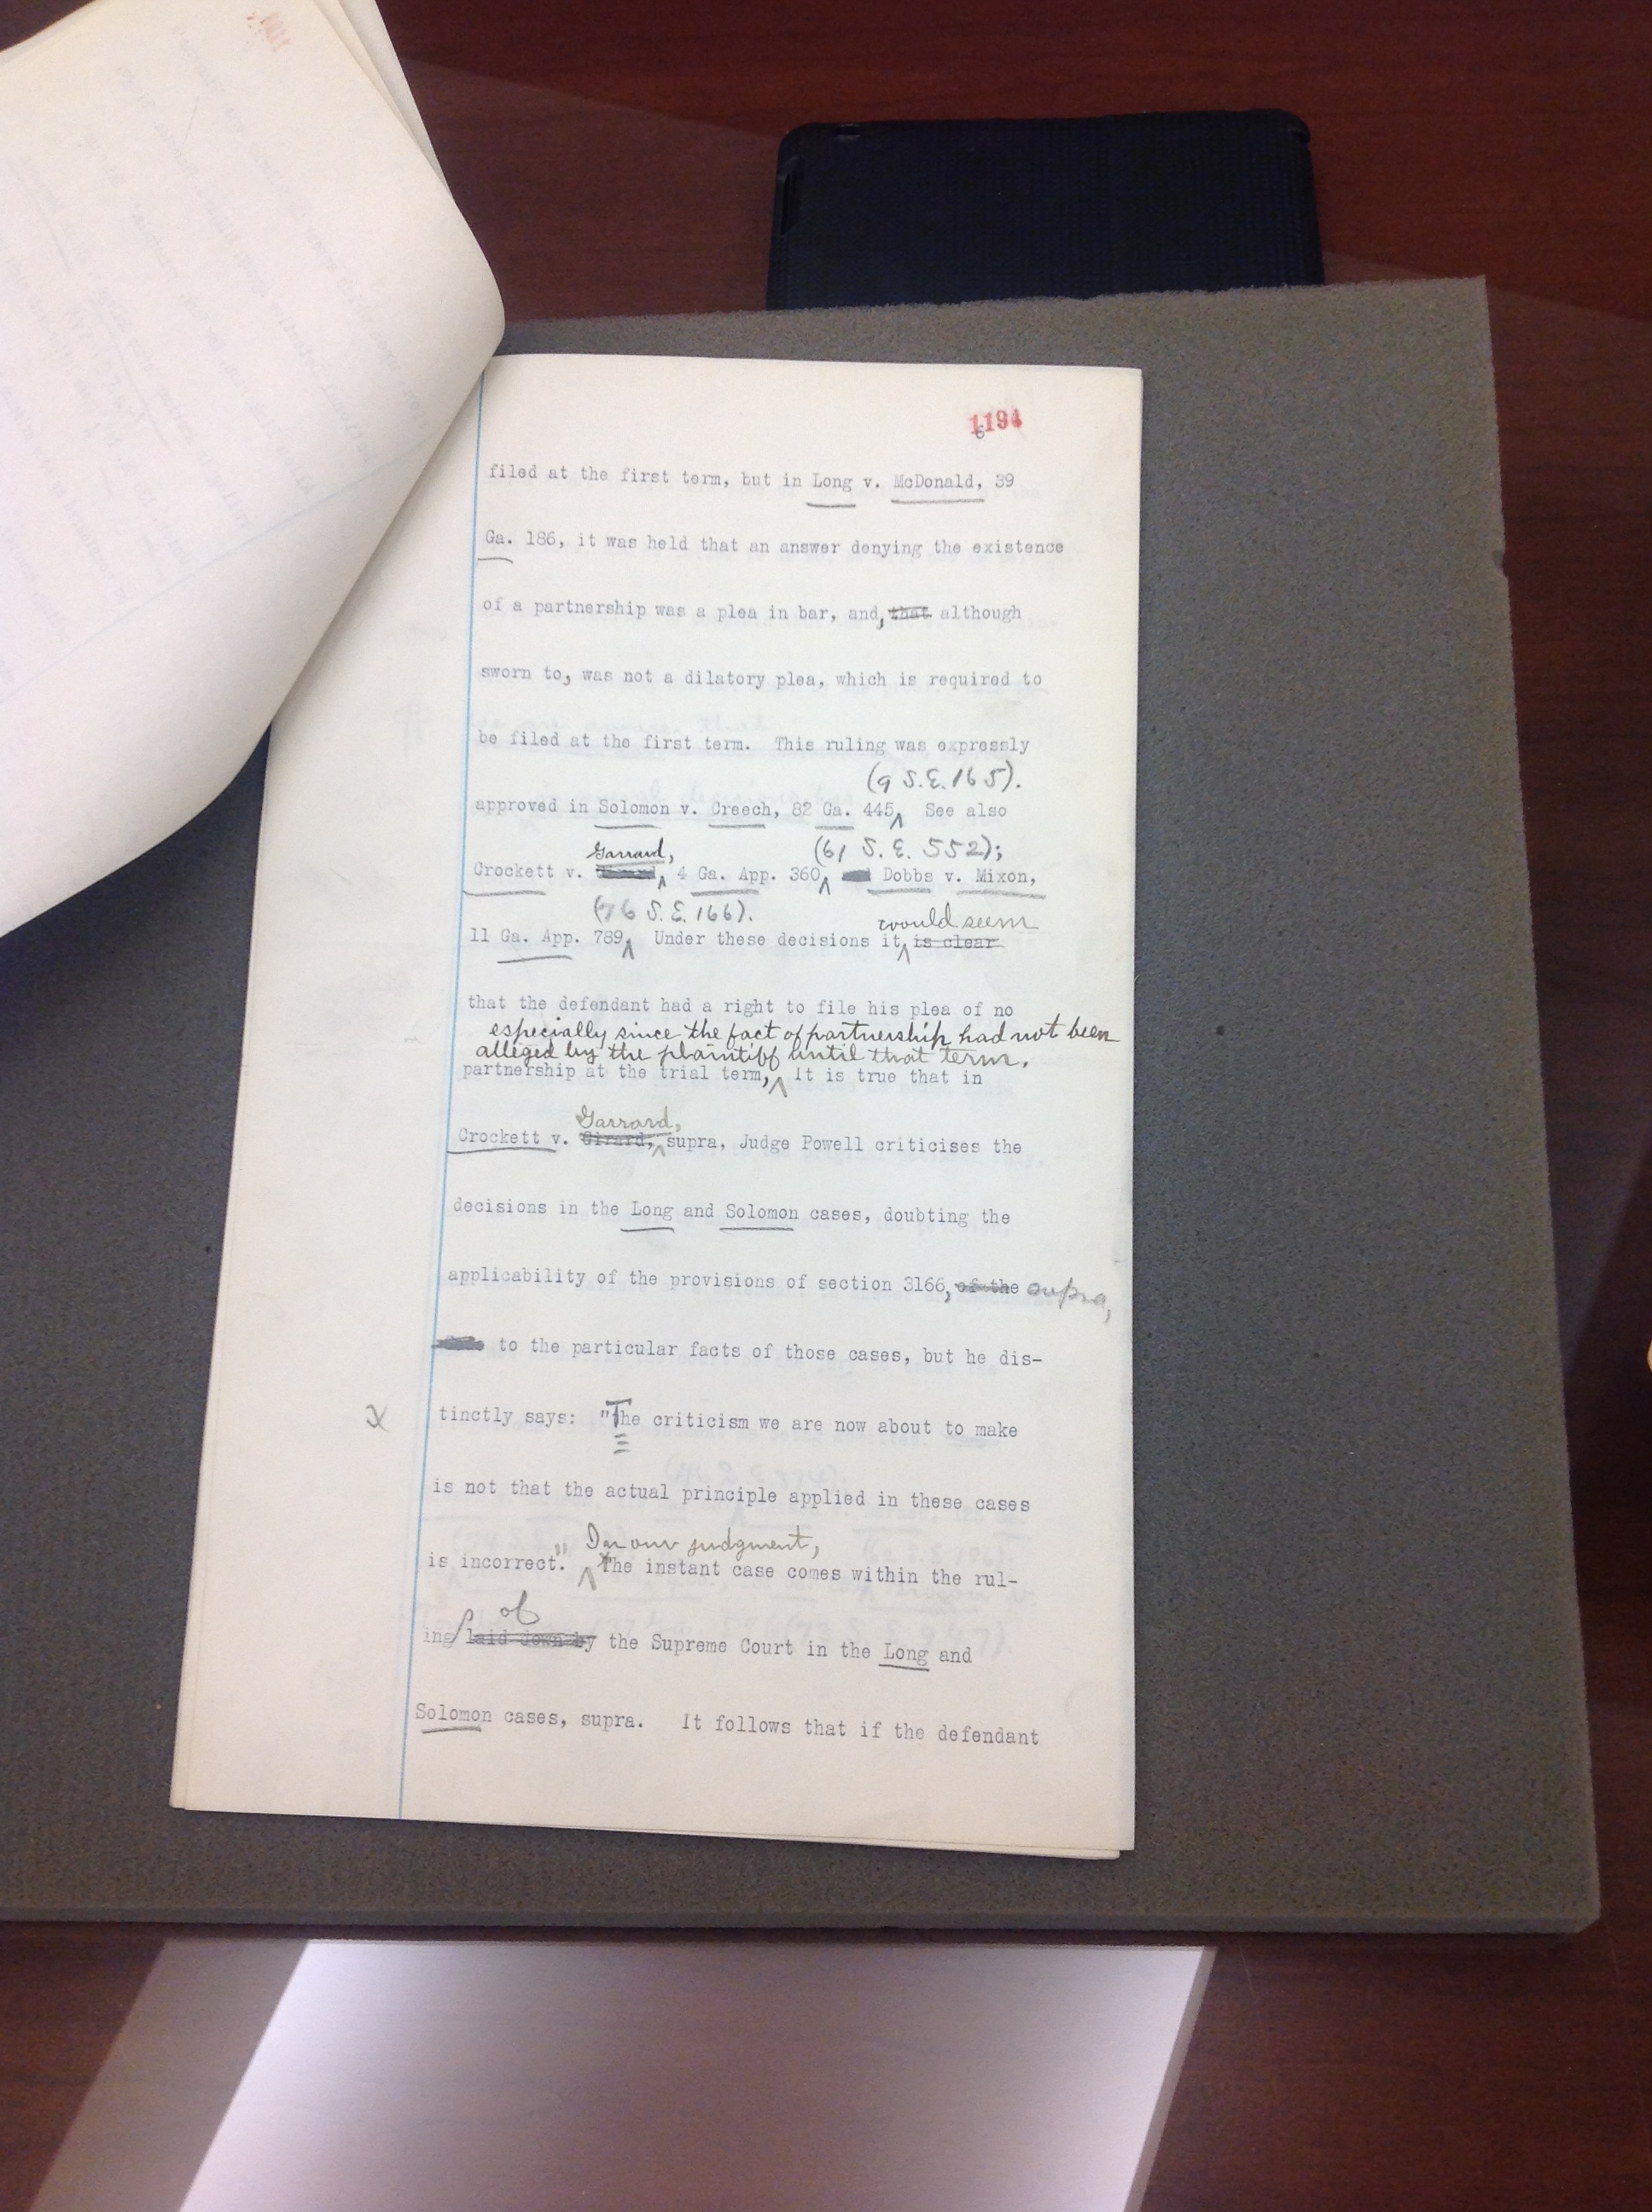 1194
6
filed at the first term, but in Long v. McDonald, 39
Ga. 186, it was held that an answer denying the existence
of a partnership was a plea in bar, and, that although
sworn to, was not a dilatory plea, which is required to
be filed at the first term. This ruling was expressly
(9 S.E. 165).
approved in Solomon v. Creech, 82 Ga. 445 See also
Garrard, (61 S.E. 552);
Crockett v. 4 Ga. App. 360 Dobbs v. Mixon,
(76 S.E. 166). would seem
11 Ga. App. 789 Under these decisions it is clear
that the defendant had a right to file his plea of no
especially since the fact of partnership had not been
alleged by the plaintiff until that term.
partnership at the trial term, It is true that in
Garrard,
Crockett v. Girard, supra, Judge Powell criticises the
decisions in the Long and Solomon cases, doubting the
applicability of the provisions of section 3166, of the supra,
to the particular facts of those cases, but he dis-
x tinctly says: "The criticism we are now about to make
is not that the actual principle applied in these cases
In our judgment,
is incorrect." The instant case comes within the rul-
of
ing laid down by the Supreme Court in the Long and
Solomon cases, supra. It follows that if the defendant